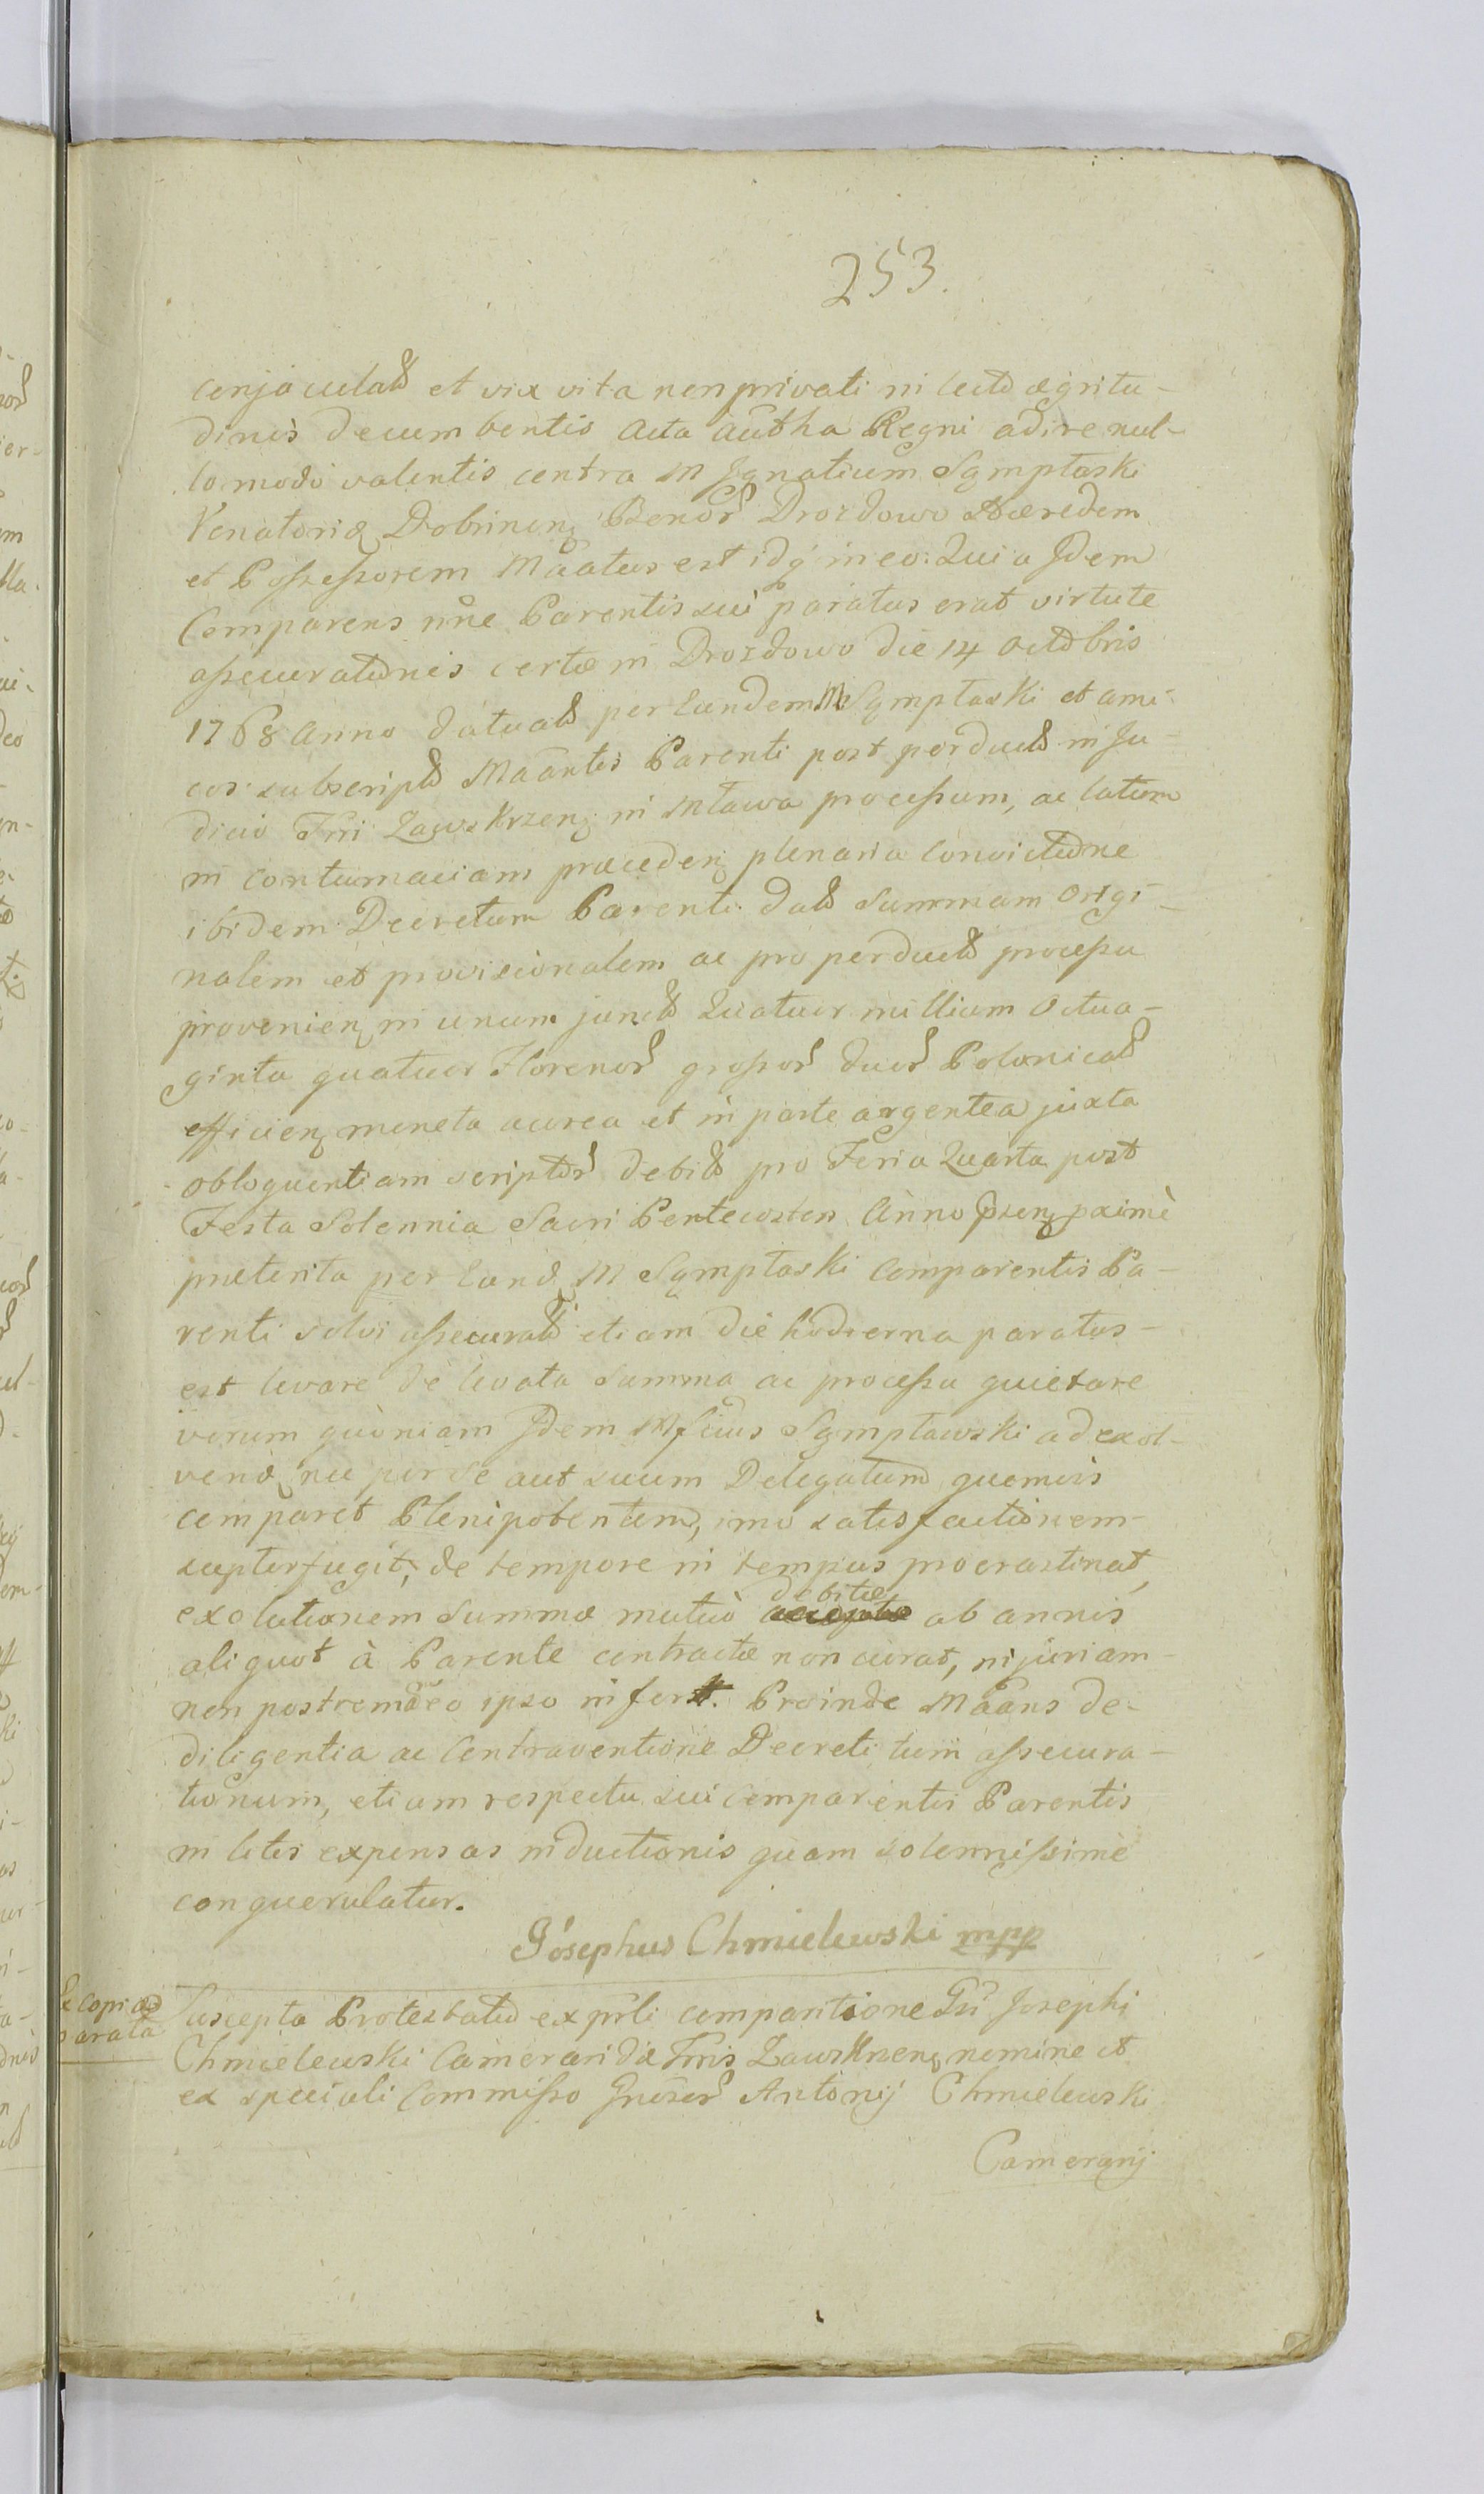 253.
conjaculat et vix vita non privati in lecto ægritu-
dinis decumbentis Acta Autha Regni adire nul-
lo modo valentis contra M Ignatium Sympłaski
Venatoridę Dobrinenę Bonor Drozdowo Hæredem
et Possessorem Māatus est idq in eo. Quia Idem
Comparens nne Parentis sui paratus erat virtute
assecurationis certæ in Drozdowo die 14 Octobris
1768 Anno datuat per Eundem M Sympłaski et ami-
cos subscript Māantis Parenti post perduct in Ju-
dicio Trri Zawskrzenę in Mława processum, ac latum
in Contumaciam præcedenę plenaria Convictione
ibidem Decretum Parenti dat Summam Origi-
nalem et provisionalem ac pro perduct processu
provenienę in unum junct Quatuor millium Octua-
ginta quatuor Florenor grossor duor Polonicat
efficienę moneta aurea et in parte argentea juxta
obloquentiam scriptor debit pro Feria Quarta post
Festa Solennia Sacri Pentecosten Anno prnę pximè
præterita per Eundę M Sympłaski Comparentis Pa-
renti solvi assecurat etiam die hodierna paratus-
est levare de levata Summa ac processu quietare
verum quoniam Idem Mfcus Sympławski ad exol-
vendę nec per se aut suum Delegatum quemvis
comparet Plenipotentem, imo satisfactionem-
supterfugit, de tempore in tempus procrastinat,
exolutionem Summæ mutuò debitæ ab annis
aliquot à Parente contractæ non curat, injuriam-
non postremā eo ipso infert. Proinde Māans de-
diligentia ac Contraventione Decreti tum assecura-
tionum, etiam respectu sui Comparentis Parentis
in litis expensas inductionis quam solennissime
conquerulatur.
Josephus Chmielewski mpp
Copia
parata
Suscepta Protestatio ex prli comparitione Gsi Josephi
Chmielewski Cameraridæ Trris Zawskrzenę nomine et
ex speciali Commisso Gnoser Antonij Chmielewski
Camerarij